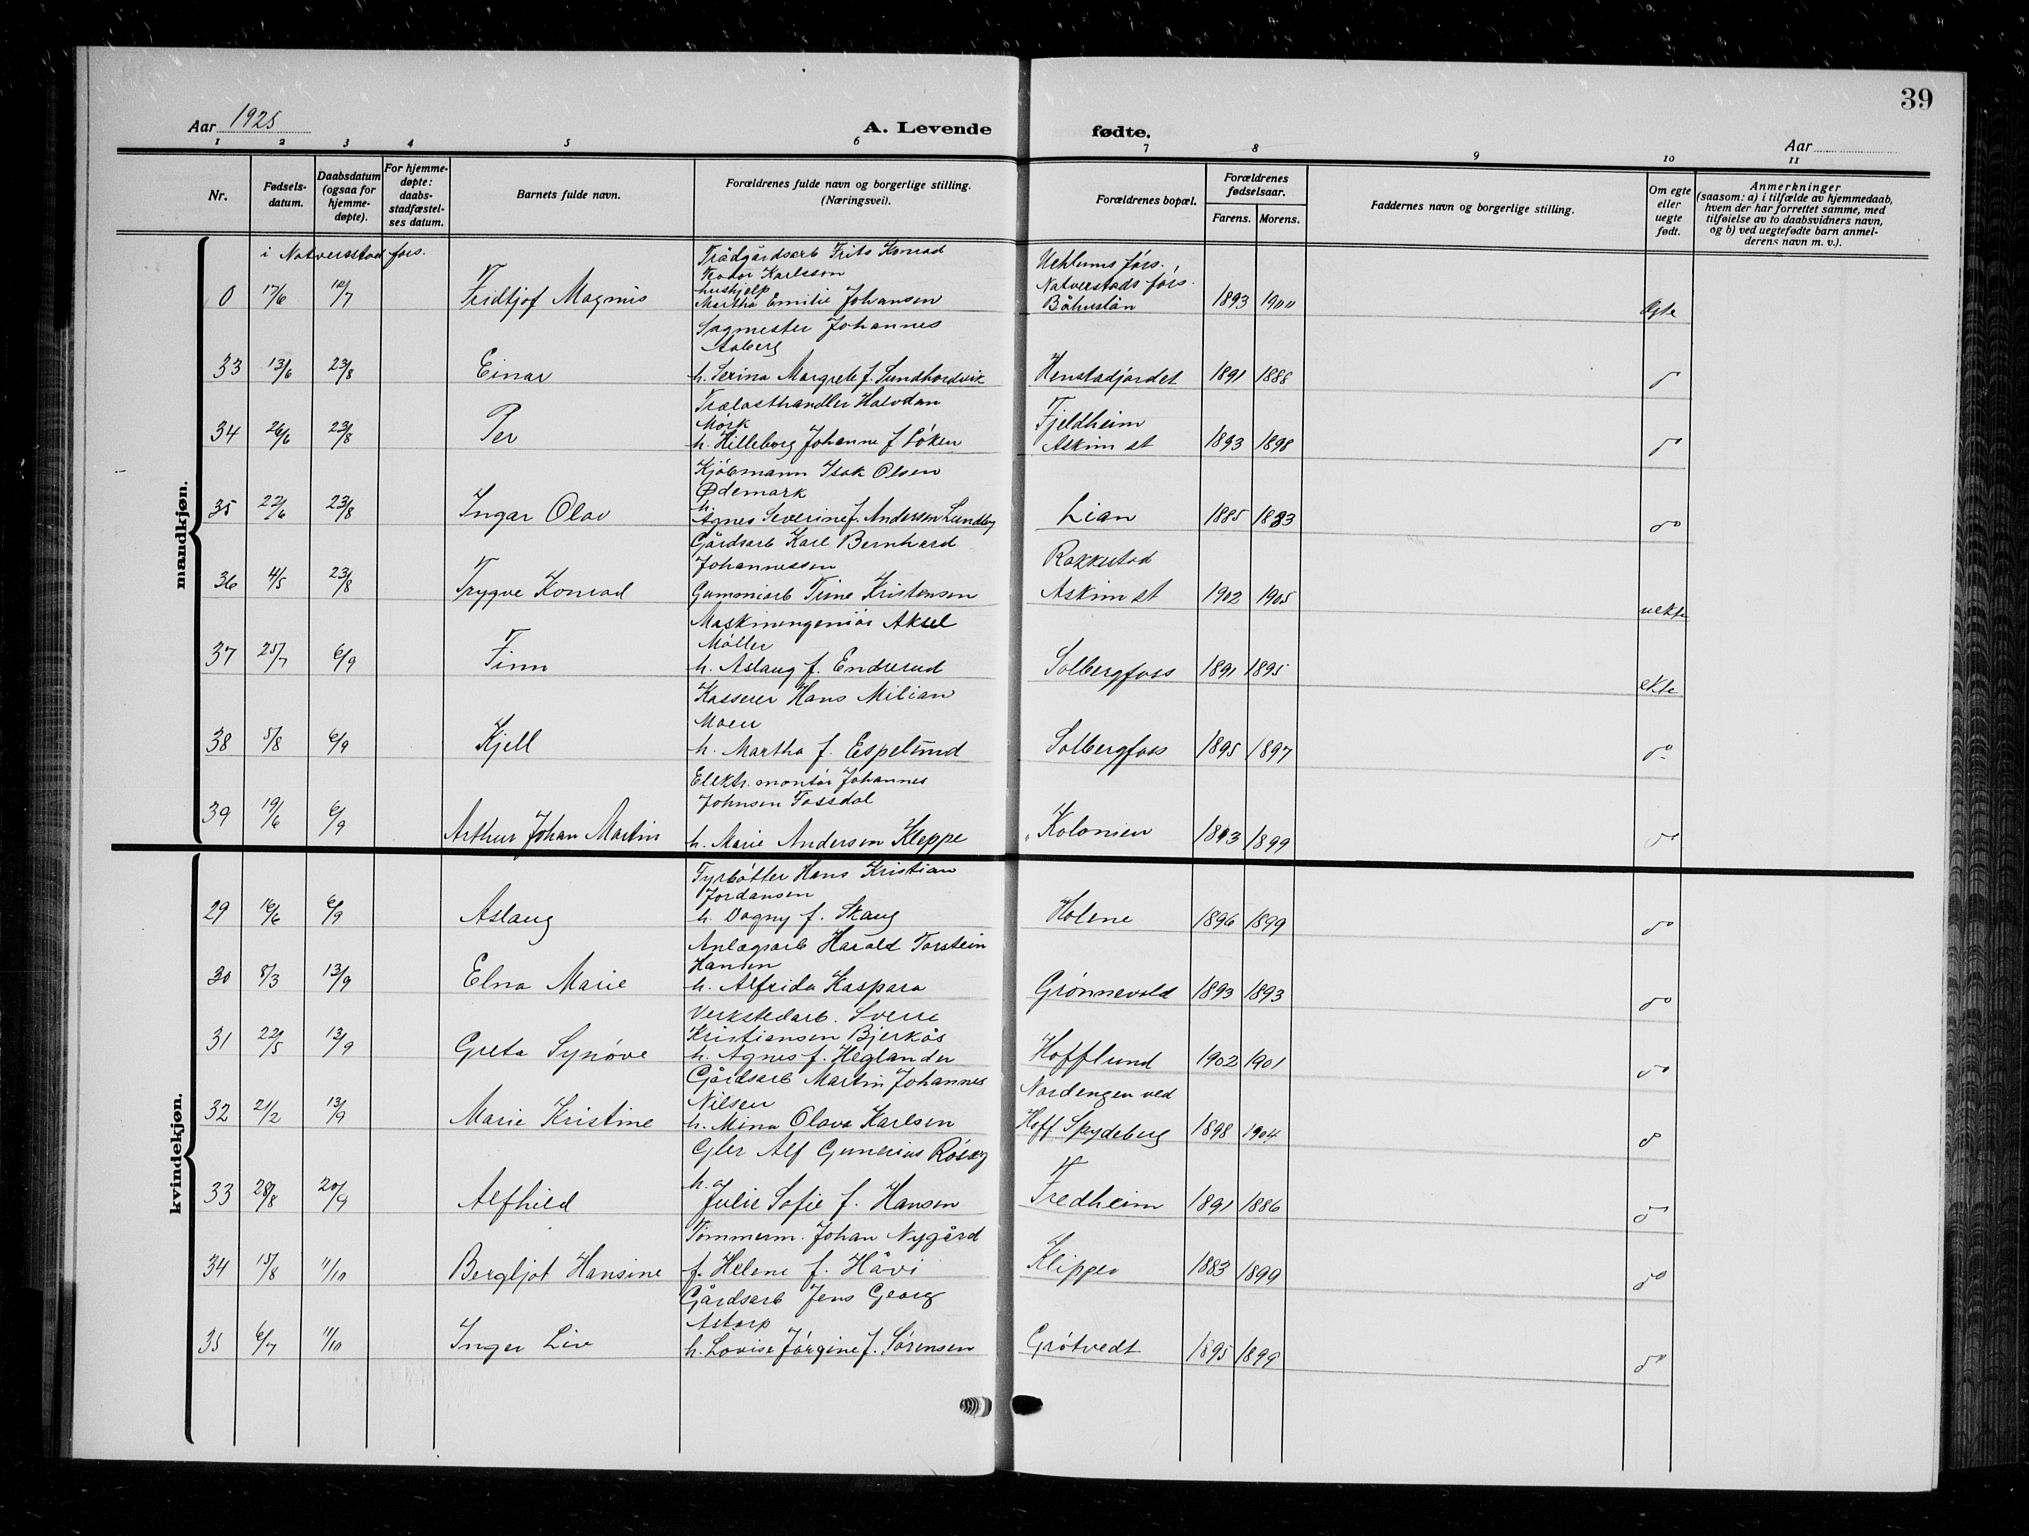 39
Aar 1925
A. Levende
fødte.
Aar
1 2 3 4 5 6 7 8 9 10 11
Nr.
Fødsels-
datum.
Daabsdatum
(ogsaa for
hjemme-
døpte).
For hjemme-
døpte:
daabs-
stadfæstel-
ses datum.
Barnets fulde navn.
Forældrenes fulde navn og borgerlige stilling.
(Næringsvei).
Forældrenes bopæl.
Forældrenes
fødselsaar.
Farens. Morens.
Faddernes navn og borgerlige stilling.
Om egte
eller
uegte
født.
Anmerkninger
(saasom: a) i tilfælde av hjemmedaab,
hvem der har forrettet samme, med
tilføielse av to daabsvidners navn,
og b) ved uegtefødte barn anmel-
derens navn m. v.).
mandkjøn.
i Natversstad fors.
Trädgårdsarb Frits Konrad
Teodor Karlsson
hushjelp
0 17/6 12/7 Fridtjof Magnus Martha Emilie Johansen
Uehlums förs.
Natverstads förs.
Båhuslän 1893 1900 egte
Sagmester Johannes
Aaberg
33 13/6 23/8 Einar h. Serina Margrete f. Sundhordvik Henstadjordet 1891 1888 do
Trælasthandler Halvdan
Mørk
34 26/6 23/8 Per h. Hilleborg Johanne f Løken
Fjeldheim
Askim st 1893 1898 do
Kjöbmann Isak Olsen
Ødemark
h.
35 22/6 23/8 Ingar Olav Agnes Severine f. Andersen Lundby Lian 1885 1883 do
Gårdsarb Karl Bernhard
Johannessen
36 4/5 23/8 Trygve Konrad Gumoniarb Trine Kristensen
Rakkestad
Askim st 1902 1905 uekte
Maskiningeniör Aksel
Møller
37 25/7 6/9 Finn h. Aslaug f. Endrerud Solbergfoss 1891 1895 ekte
Kasserer Hans Milian
Moen
38 5/8 6/9 Kjell h. Martha f. Espelund Solbergfoss 1895 1897 do
Elektr. montör Johannes
Johnsen Fossdal
39 19/6 6/9 Arthur Johan Martin h. Marie Andersen Kleppe Kolonien 1893 1899 do
kvindekjøn.
Tyrbötter Hans Kristian
Jordansen
29 16/6 6/9 Aslaug h. Dagny f. Skaug Holene 1896 1899 do
Anlægsarb Harald Torstein
Hansen
30 8/3 13/9 Elna Marie h. Alfrida Kaspara Grønnevold 1893 1893 do
Verkstedarb. Sverre
Kristiansen Bjerkås
31 22/5 13/9 Greta Synøve h. Agnes f. Heglander Hofflund 1902 1901 do
Gårdsarb Martin Johannes
Nilsen
32 21/2 13/9 Marie Kristine h. Mina Olava Karlsen
Nordengen ved
Hoff Spydeberg 1898 1904 do
Gler Alf Gunerius Rösæg
h.
33 28/8 20/9 Alfhild Julie Sofie f. Hansen Fredheim 1891 1886 do
Tömmerm. Johan Nygård
34 15/8 11/10 Bergljot Hansine f. Helene f. Håvi Klipper 1883 1899 do
Gårdsarb Jens Georg
Astorp
35 6/7 11/10 Inger Liv h. Lovise Jörgine f. Sørensen Grötvedt 1895 1899 do